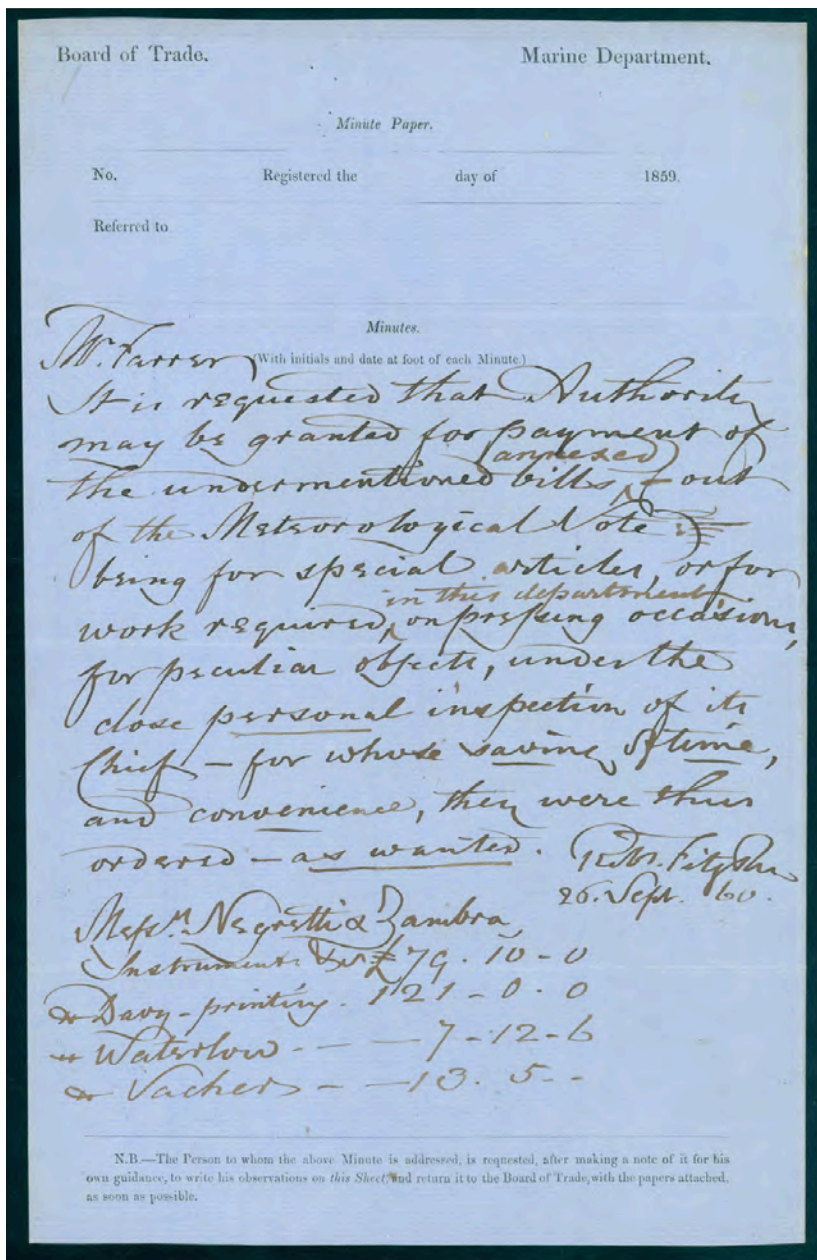 Board of Trade. Marine Department.
Minute Paper.
No. Registered the day of 1859.
Referred to
Minutes.
Mr. Farrer (With initials and date at foot of each Minute.)
It is requested that Authority
may be granted for payment of
(annexed)
the undermentioned bills, – out
of the Meteorological Vote
being for special articles, or for
in this department
work required, on pressing occasions,
for peculiar objects, under the
close personal inspection of its
Chief – for whose saving of time,
and convenience, they were thus
ordered – as wanted. Rt. FitzRoy
26. Sept. 60.
Messrs. Negretti & Zambra,
Instruments &c £79. 10 - 0
Davy - printing. 121 - 0. 0
Waterlow - - - 7 - 12 - 6
Vacher - - 13. 5. -
N.B.—The Person to whom the above Minute is addressed, is requested, after making a note of it for his
own guidance, to write his observations on this Sheet, and return it to the Board of Trade, with the papers attached,
as soon as possible.